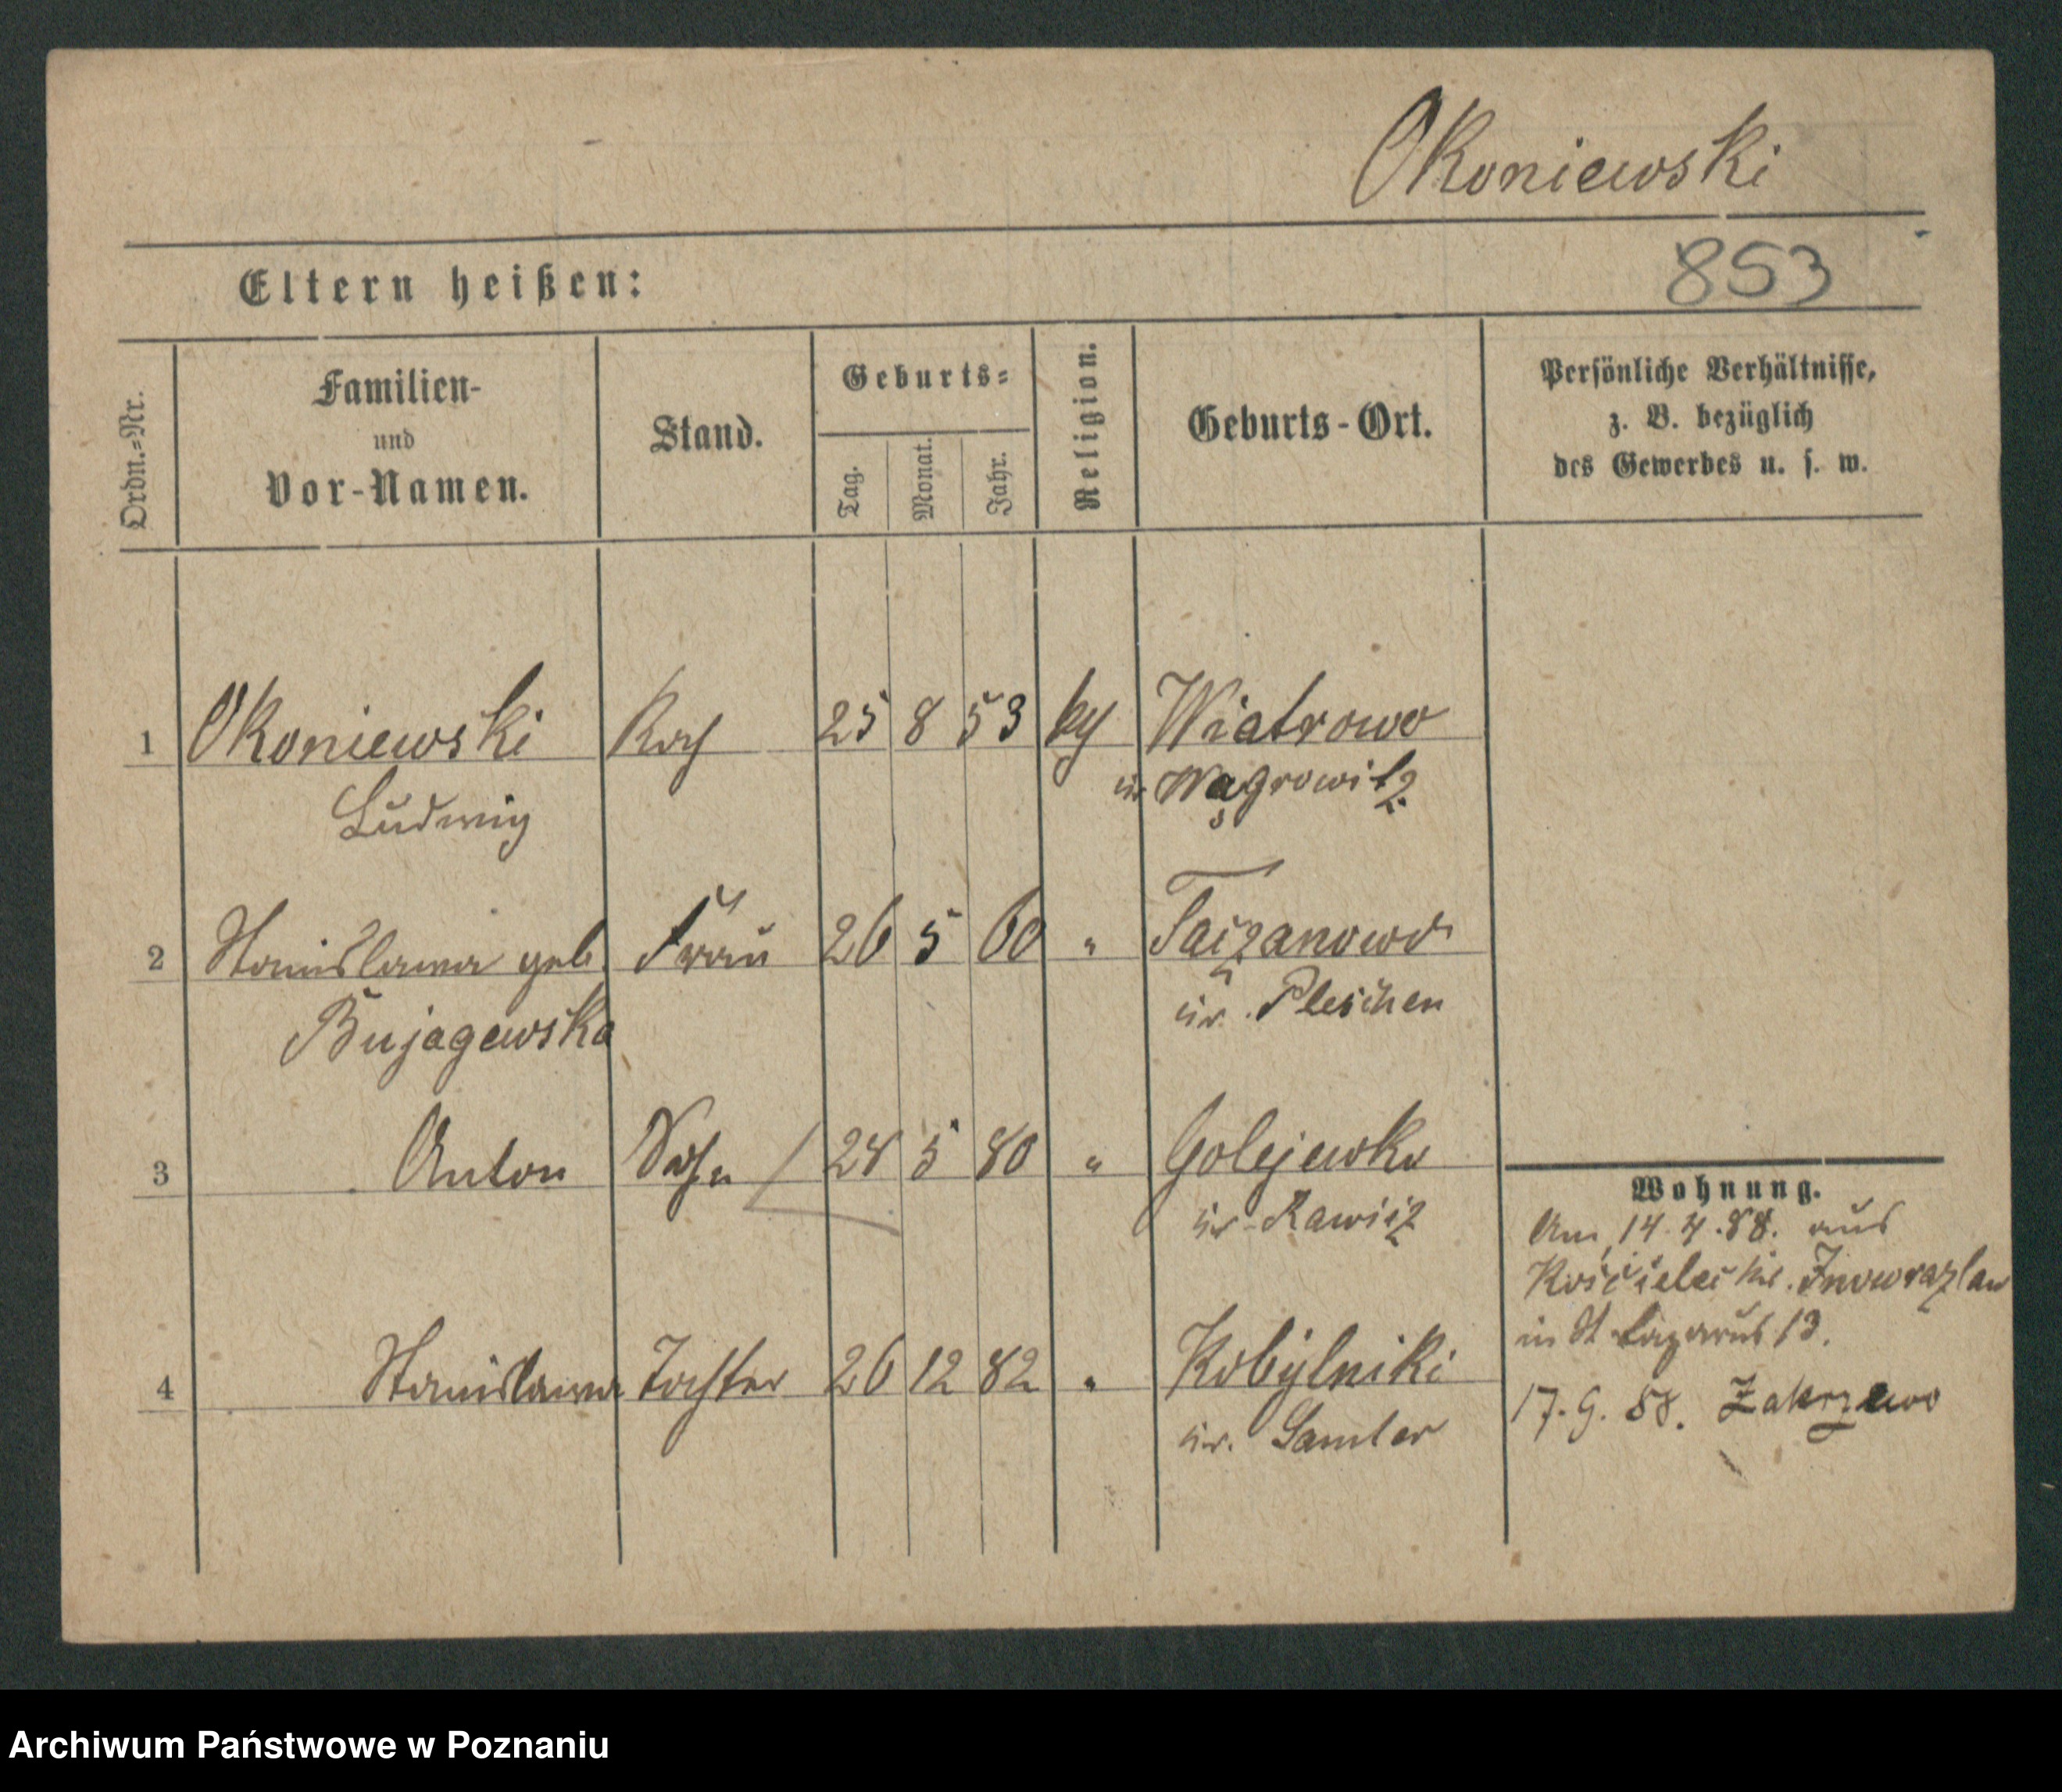 Okoniewski
853
Eltern heißen:
Ordn.=Nr.
Familien-
und
Vor-Namen.
Stand.
Geburts=
Tag.
Monat.
Jahr.
Religion.
Geburts-Ort.
Persönliche Verhältnisse,
z. B. bezüglich
des Gewerbes u. s. w.
1 Okoniewski Koch 25 8 53 Wiatrowo
Ludwig Wągrowitz
2 Stanislawa geb. Frau 26 5 60 " Taczanowo
Bujagewska Kr. Pleschen
3 Anton Sohn 28 5 80 " Golejewko
Kr. Rawicz
4 Stanislawa Tochter 26 12 82 " Kobylniki
Kr. Samter
Wohnung.
Am 14.4.88. aus
Kościelec Kr. Inowrazlaw
in St Lazarus 13.
17.9.88. Zakrzewo
Archiwum Państwowe w Poznaniu